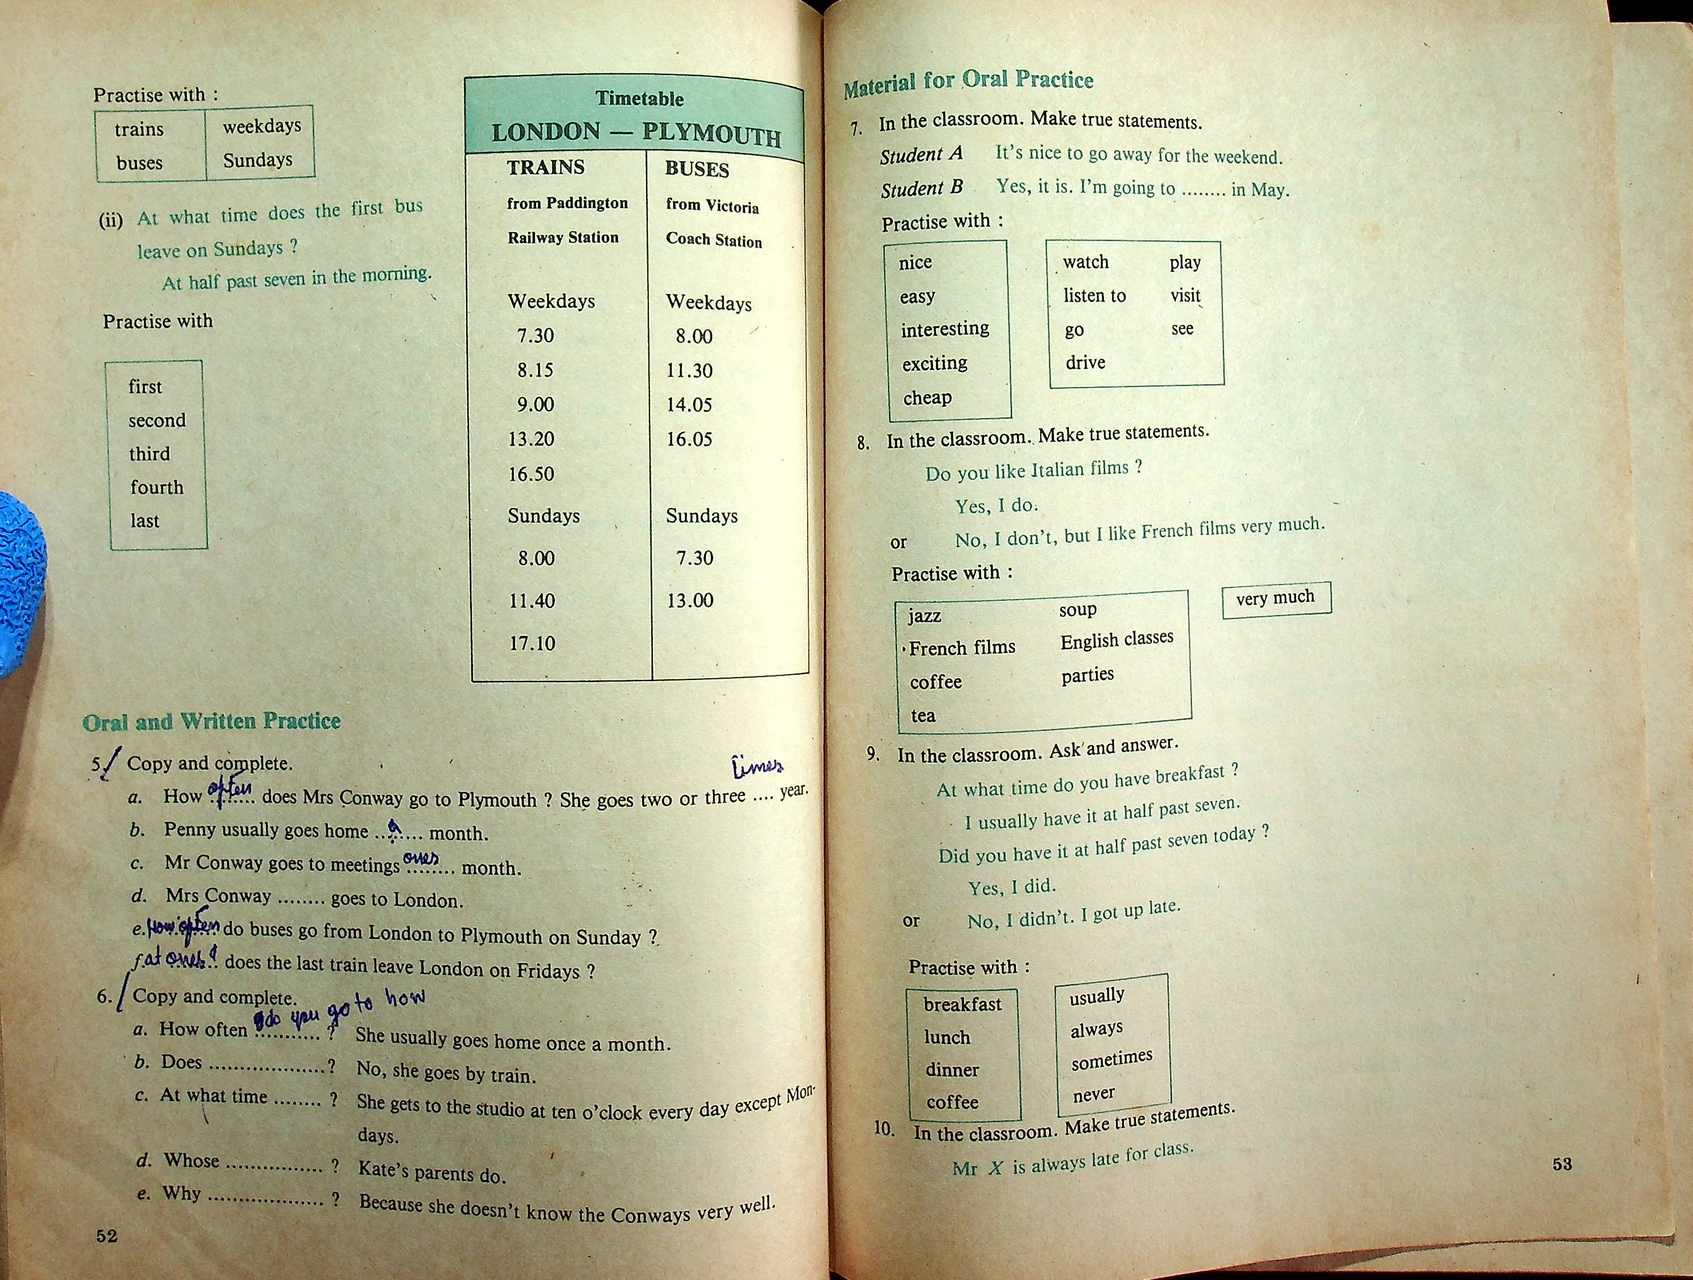 Practise with :
trains weekdays
buses Sundays
(ii) At what time does the first bus
leave on Sundays ?
At half past seven in the morning.
Practise with
first
second
third
fourth
last
Timetable
LONDON — PLYMOUTH
TRAINS BUSES
from Paddington from Victoria
Railway Station Coach Station
Weekdays Weekdays
7.30 8.00
8.15 11.30
9.00 14.05
13.20 16.05
16.50
Sundays Sundays
8.00 7.30
11.40 13.00
17.10
Oral and Written Practice
5. Copy and complete.
times
a. How often ........ does Mrs Conway go to Plymouth ? She goes two or three .... year.
b. Penny usually goes home ...a.... month.
c. Mr Conway goes to meetings ones ........ month.
d. Mrs Conway ........ goes to London.
e. How often ........ do buses go from London to Plymouth on Sunday ?
f. at ones ........ does the last train leave London on Fridays ?
6. Copy and complete.
do you go to how
a. How often ........... ? She usually goes home once a month.
b. Does ...................? No, she goes by train.
c. At what time ........ ? She gets to the studio at ten o'clock every day except Mon-
days.
d. Whose ................ ? Kate's parents do.
e. Why ................... ? Because she doesn't know the Conways very well.
52
Material for Oral Practice
7. In the classroom. Make true statements.
Student A It's nice to go away for the weekend.
Student B Yes, it is. I'm going to ........ in May.
Practise with :
nice watch play
easy listen to visit
interesting go see
exciting drive
cheap
8. In the classroom. Make true statements.
Do you like Italian films ?
Yes, I do.
or No, I don't, but I like French films very much.
Practise with :
jazz soup very much
French films English classes
coffee parties
tea
9. In the classroom. Ask and answer.
At what time do you have breakfast ?
I usually have it at half past seven.
Did you have it at half past seven today ?
Yes, I did.
or No, I didn't. I got up late.
Practise with :
breakfast usually
lunch always
dinner sometimes
coffee never
10. In the classroom. Make true statements.
Mr X is always late for class.
53